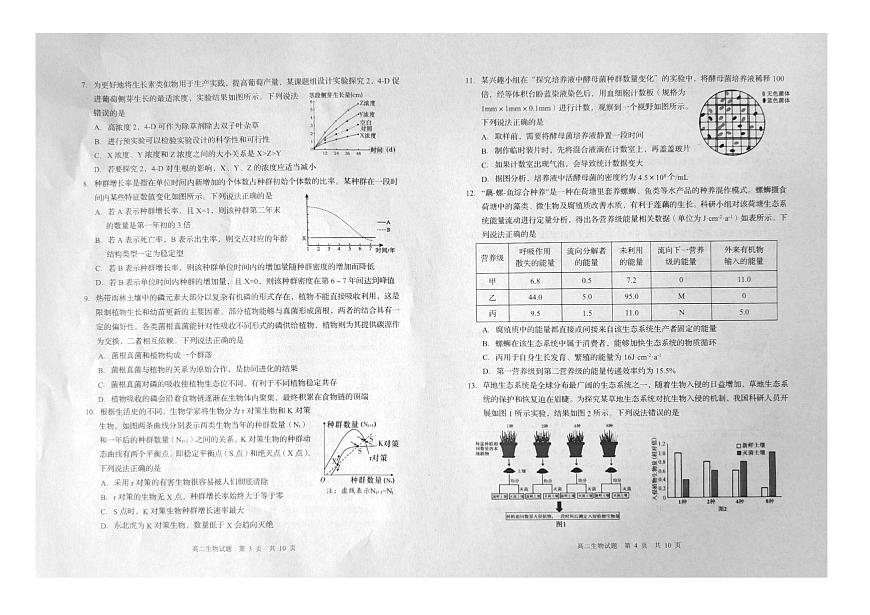 7. 为更好地将生长素类似物用于生产实践，提高葡萄产量，某课题组设计实验探究 2，4-D 促
进葡萄侧芽生长的最适浓度，实验结果如图所示。下列说法
错误的是
A. 高浓度 2，4-D 可作为除草剂除去双子叶杂草
B. 进行预实验可以检验实验设计的科学性和可行性
C. X 浓度、Y 浓度和 Z 浓度之间的大小关系是 X>Z>Y
D. 若要探究 2，4-D 对生根的影响，X、Y、Z 的浓度应适当减小
茎段侧芽生长量(cm)
Z浓度
Y浓度
空白
对照
X浓度
12 24 36 48 时间 (d)
8. 种群增长率是指在单位时间内新增加的个体数占种群初始个体数的比率。某种群在一段时
间内某些特征数值变化如图所示。下列说法正确的是
A. 若 A 表示种群增长率，且 X=1，则该种群第二年末
的数量是第一年初的 3 倍
B. 若 A 表示死亡率，B 表示出生率，则交点对应的年龄
结构类型一定为稳定型
C. 若 B 表示种群增长率，则该种群单位时间内的增加量随种群密度的增加而降低
D. 若 B 表示单位时间内种群的增加量，且 X=0，则该种群密度在第 6－7 年间达到峰值
X
A
B
1 2 3 4 5 6 7 时间/年
9. 热带雨林土壤中的磷元素大部分以复杂有机磷的形式存在，植物不能直接吸收利用，这是
限制植物生长和幼苗更新的主要因素。部分植物能够与真菌形成菌根，两者的结合具有一
定的偏好性。各类菌根真菌能针对性吸收不同形式的磷供给植物，植物则为其提供碳源作
为交换，二者相互依赖。下列说法正确的是
A. 菌根真菌和植物构成一个群落
B. 菌根真菌与植物的关系为原始合作，是协同进化的结果
C. 菌根真菌对磷的吸收使植物生态位不同，有利于不同植物稳定共存
D. 植物吸收的磷会沿着食物链逐渐在生物体内聚集，最终积累在食物链的顶端
10. 根据生活史的不同，生物学家将生物分为 r 对策生物和 K 对策
生物。如图两条曲线分别表示两类生物当年的种群数量（Nt）
和一年后的种群数量（Nt+1）之间的关系。K 对策生物的种群动
态曲线有两个平衡点，即稳定平衡点（S 点）和绝灭点（X 点）。
下列说法正确的是
A. 采用 r 对策的有害生物很容易被人们彻底清除
B. r 对策的生物无 X 点，种群增长率始终大于等于零
C. S 点时，K 对策生物种群增长速率最大
D. 东北虎为 K 对策生物，数量低于 X 会趋向灭绝
种群数量 (Nt+1)
S
S
K对策
r对策
X
O
种群数量 (Nt)
注：虚线表示Nt+1=Nt
高二生物试题 第 3 页 共 10 页
11. 某兴趣小组在“探究培养液中酵母菌种群数量变化”的实验中，将酵母菌培养液稀释 100
倍，经等体积台盼蓝染液染色后，用血细胞计数板（规格为
1mm×1mm×0.1mm）进行计数，观察到一个视野如图所示。
下列说法正确的是
A. 取样前，需要将酵母菌培养液静置一段时间
B. 制作临时装片时，先将混合液滴在计数室上，再盖盖玻片
C. 如果计数室出现气泡，会导致统计数据变大
D. 据图分析，培养液中活酵母菌的密度约为 4.5×10⁸个/mL
无色菌体
蓝色菌体
12. “藕-螺-鱼综合种养”是一种在荷塘里套养螺蛳、鱼类等水产品的种养混作模式。螺蛳摄食
荷塘中的藻类、微生物及腐殖质改善水质，有利于莲藕的生长。科研小组对该荷塘生态系
统能量流动进行定量分析，得出各营养级能量相关数据（单位为 J·cm⁻²·a⁻¹）如表所示。下
列说法正确的是
营养级 呼吸作用散失的能量 流向分解者的能量 未利用的能量 流向下一营养级的能量 外来有机物输入的能量
甲 6.8 0.5 7.2 0 11.0
乙 44.0 5.0 95.0 M 0
丙 9.5 1.5 11.0 N 5.0
A. 腐殖质中的能量都直接或间接来自该生态系统生产者固定的能量
B. 螺蛳在该生态系统中属于消费者，能够加快生态系统的物质循环
C. 丙用于自身生长发育、繁殖的能量为 16J·cm⁻²·a⁻¹
D. 第一营养级到第二营养级的能量传递效率约为 15.5%
13. 草地生态系统是全球分布最广阔的生态系统之一，随着生物入侵的日益增加，草地生态系
统的保护和恢复迫在眉睫。为探究某草地生态系统对抗生物入侵的机制，我国科研人员开
展如图 1 所示实验，结果如图 2 所示。下列说法错误的是
1种 2种 4种 8种
土壤
均分 均分 均分 均分
灭菌 灭菌 灭菌 灭菌
图1
入侵植物生物量(相对值)
1.2
1.0
0.8
0.6
0.4
0.2
0
新鲜土壤
灭菌土壤
1种 2种 4种 8种
图2
高二生物试题 第 4 页 共 10 页